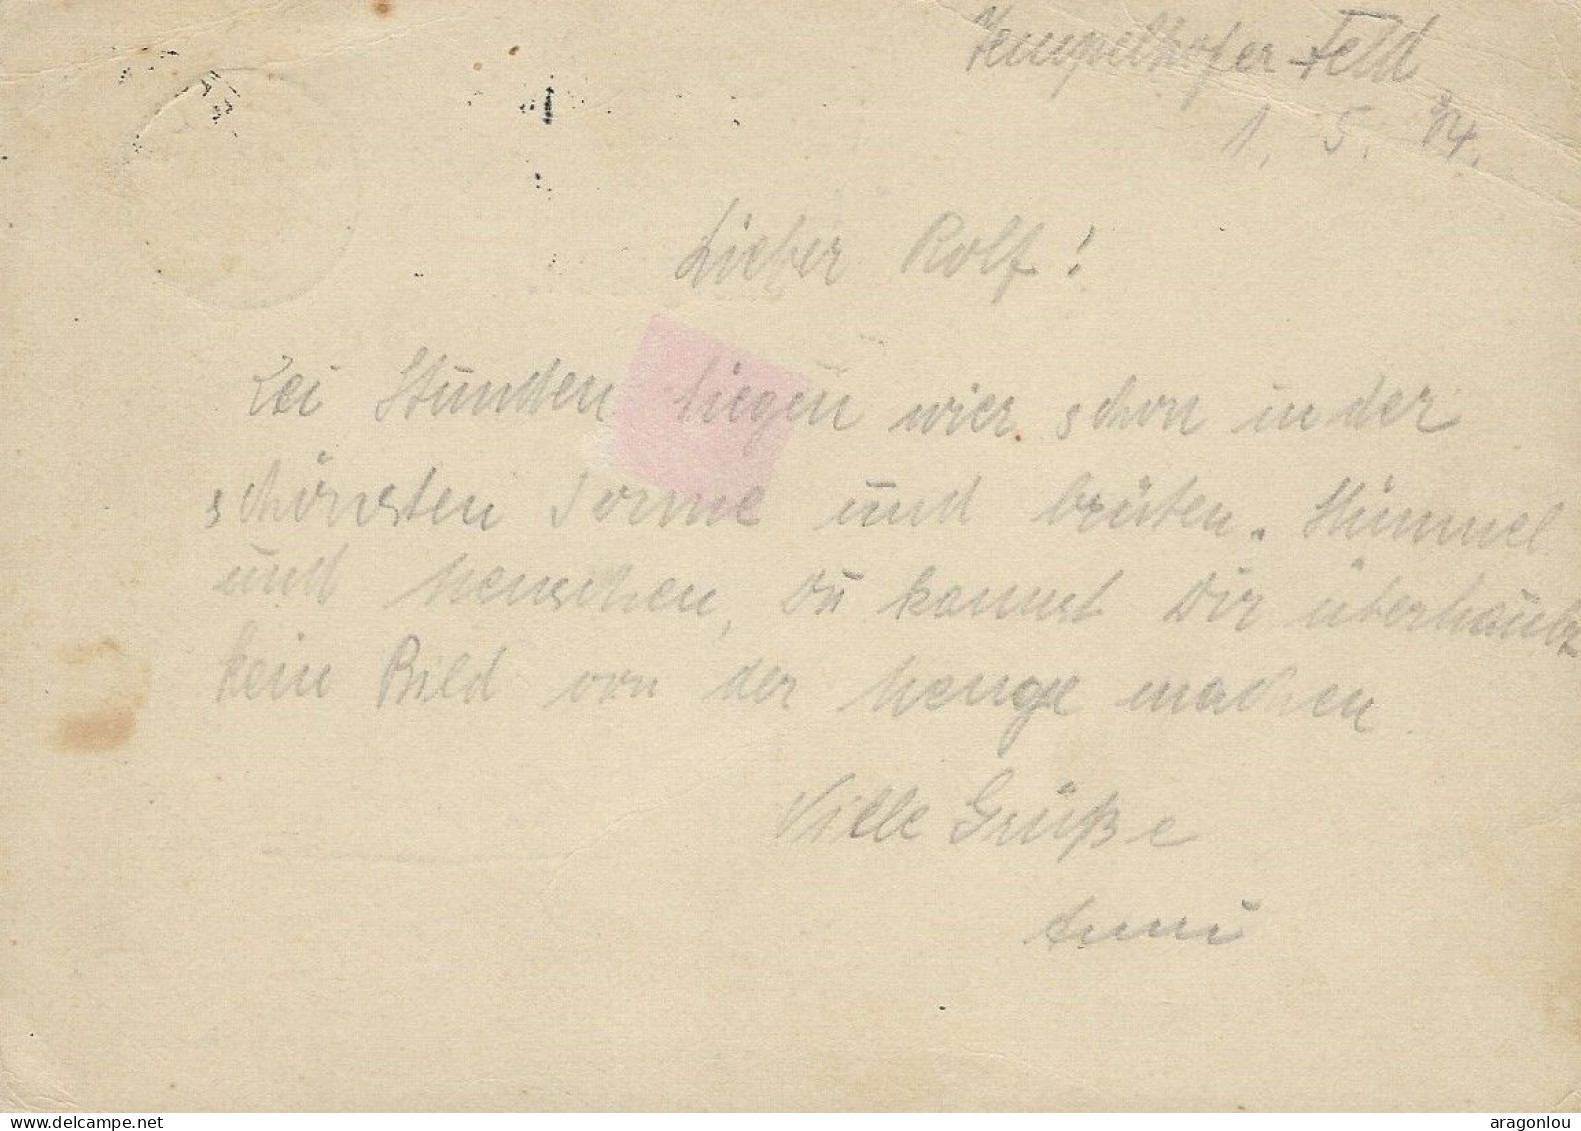 Tempelhofer Feld
1. 5. 34.
Lieber Rolf!
Sei Stunden liegen wier schon in der
schönsten Sonne und brüten. Himmel
und Menschen, Du kannst Dir überhaubt
kein Bild von der Menge machen
Ville Grüße
Anni
aragonlou
www.delcampe.net